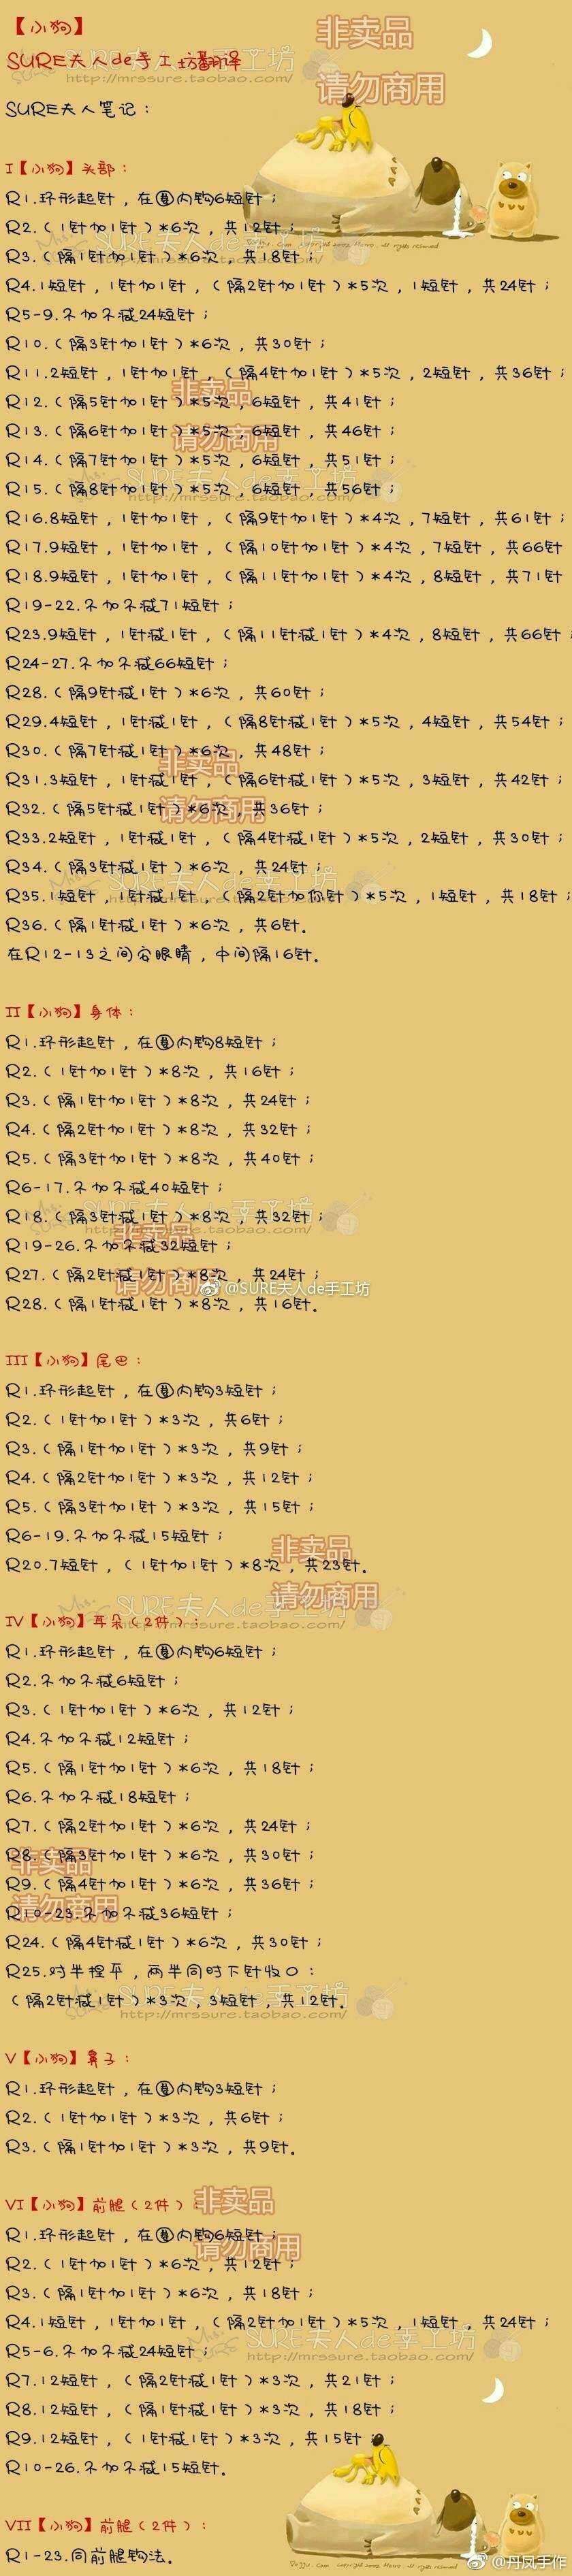 【小狗】
非卖品
请勿商用
SURE夫人de手工坊翻译
http://mrssure.taobao.com/
SURE夫人笔记：
I【小狗】头部：
R1.环形起针，在圈内钩6短针；
R2.（1针加1针）*6次，共12针；
R3.（隔1针加1针）*6次，共18针；
R4.1短针，1针加1针，（隔2针加1针）*5次，1短针，共24针；
R5-9.不加不减24短针；
R10.（隔3针加1针）*6次，共30针；
R11.2短针，1针加1针，（隔4针加1针）*5次，2短针，共36针；
R12.（隔5针加1针）*5次，6短针，共41针；
R13.（隔6针加1针）*5次，6短针，共46针；
R14.（隔7针加1针）*5次，6短针，共51针；
R15.（隔8针加1针）*5次，6短针，共56针；
R16.8短针，1针加1针，（隔9针加1针）*4次，7短针，共61针；
R17.9短针，1针加1针，（隔10针加1针）*4次，7短针，共66针
R18.9短针，1针加1针，（隔11针加1针）*4次，8短针，共71针
R19-22.不加不减71短针；
R23.9短针，1针减1针，（隔11针减1针）*4次，8短针，共66针；
R24-27.不加不减66短针；
R28.（隔9针减1针）*6次，共60针；
R29.4短针，1针减1针，（隔8针减1针）*5次，4短针，共54针；
R30.（隔7针减1针）*6次，共48针；
R31.3短针，1针减1针，（隔6针减1针）*5次，3短针，共42针；
R32.（隔5针减1针）*6次，共36针；
R33.2短针，1针减1针，（隔4针减1针）*5次，2短针，共30针；
R34.（隔3针减1针）*6次，共24针；
R35.1短针，1针减1针，（隔2针加你针）*5次，1短针，共18针；
R36.（隔1针减1针）*6次，共6针。
在R12-13之间安眼睛，中间隔16针。
II【小狗】身体：
R1.环形起针，在圈内钩8短针；
R2.（1针加1针）*8次，共16针；
R3.（隔1针加1针）*8次，共24针；
R4.（隔2针加1针）*8次，共32针；
R5.（隔3针加1针）*8次，共40针；
R6-17.不加不减40短针；
R18.（隔3针减1针）*8次，共32针；
R19-26.不加不减32短针；
R27.（隔2针减1针）*8次，共24针；
@SURE夫人de手工坊
R28.（隔1针减1针）*8次，共16针。
III【小狗】尾巴：
R1.环形起针，在圈内钩3短针；
R2.（1针加1针）*3次，共6针；
R3.（隔1针加1针）*3次，共9针；
R4.（隔2针加1针）*3次，共12针；
R5.（隔3针加1针）*3次，共15针；
R6-19.不加不减15短针；
R20.7短针，（1针加1针）*8次，共23针。
非卖品
请勿商用
IV【小狗】耳朵（2件）：
R1.环形起针，在圈内钩6短针；
R2.不加不减6短针；
R3.（1针加1针）*6次，共12针；
R4.不加不减12短针；
R5.（隔1针加1针）*6次，共18针；
R6.不加不减18短针；
R7.（隔2针加1针）*6次，共24针；
R8.（隔3针加1针）*6次，共30针；
R9.（隔4针加1针）*6次，共36针；
R10-23.不加不减36短针；
R24.（隔4针减1针）*6次，共30针；
R25.对半捏平，两半同时下针收口：
（隔2针减1针）*3次，3短针，共12针。
V【小狗】鼻子：
R1.环形起针，在圈内钩3短针；
R2.（1针加1针）*3次，共6针；
R3.（隔1针加1针）*3次，共9针。
VI【小狗】前腿（2件）：
非卖品
请勿商用
R1.环形起针，在圈内钩6短针；
R2.（1针加1针）*6次，共12针；
R3.（隔1针加1针）*6次，共18针；
R4.1短针，1针加1针，（隔2针加1针）*5次，1短针，共24针；
R5-6.不加不减24短针；
R7.12短针，（隔2针减1针）*3次，共21针；
R8.12短针，（隔1针减1针）*3次，共18针；
R9.12短针，（1针减1针）*3次，共15针；
R10-26.不加不减15短针。
VII【小狗】前腿（2件）：
R1-23.同前腿钩法。
@丹凤手作